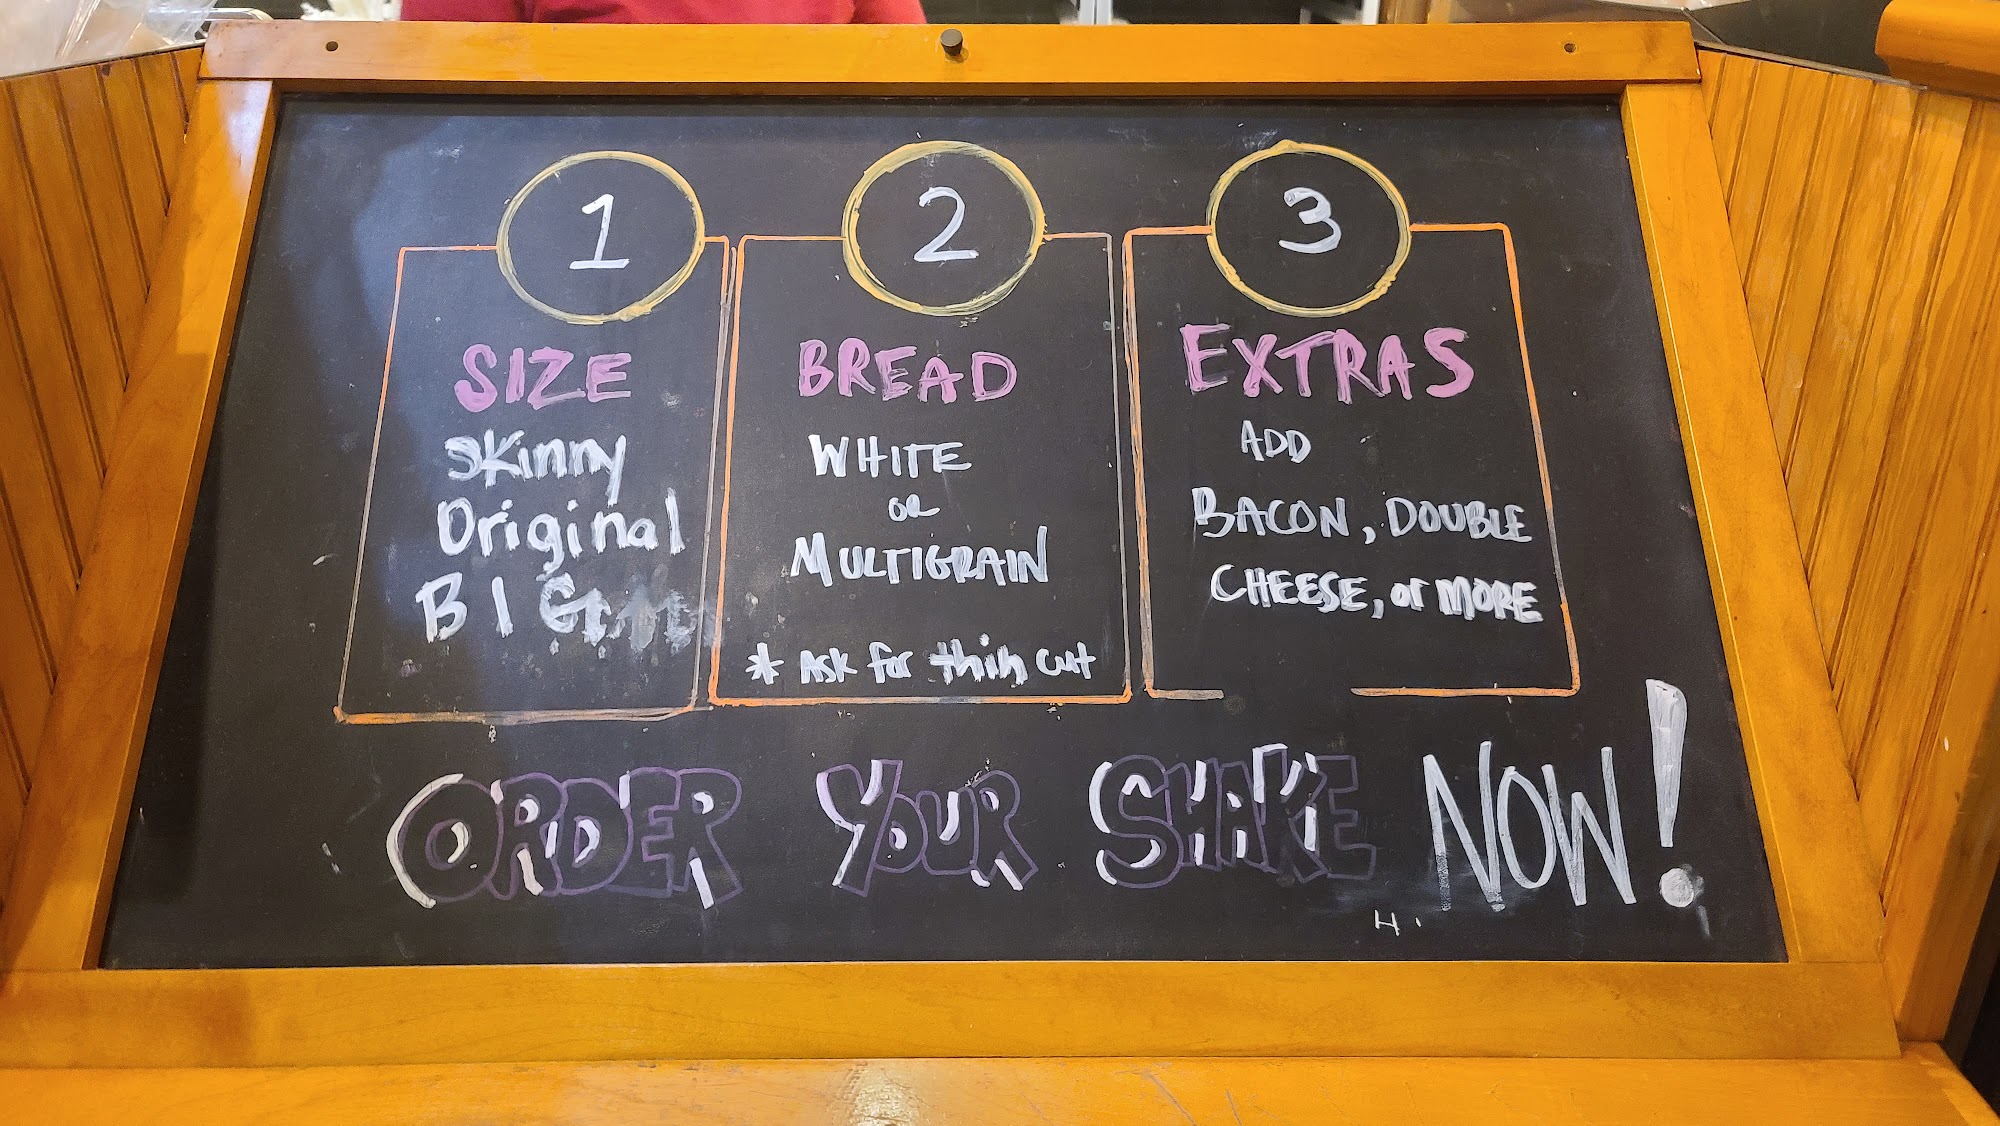 1
SIZE
Skinny
Original
BIG
2
BREAD
WHITE
OR
MULTIGRAIN
* Ask for thin cut
3
EXTRAS
ADD
BACON, DOUBLE
CHEESE, or MORE
ORDER YOUR SHAKE NOW!
Hi